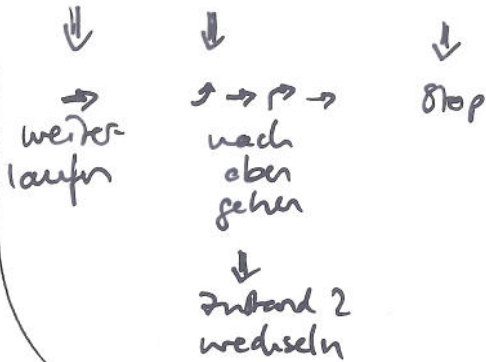 ⇓ ⇓ ⇓
→ ↱ → ↱ → Stop
weiter-
laufen
nach
oben
gehen
⇓
Zustand 2
wechseln